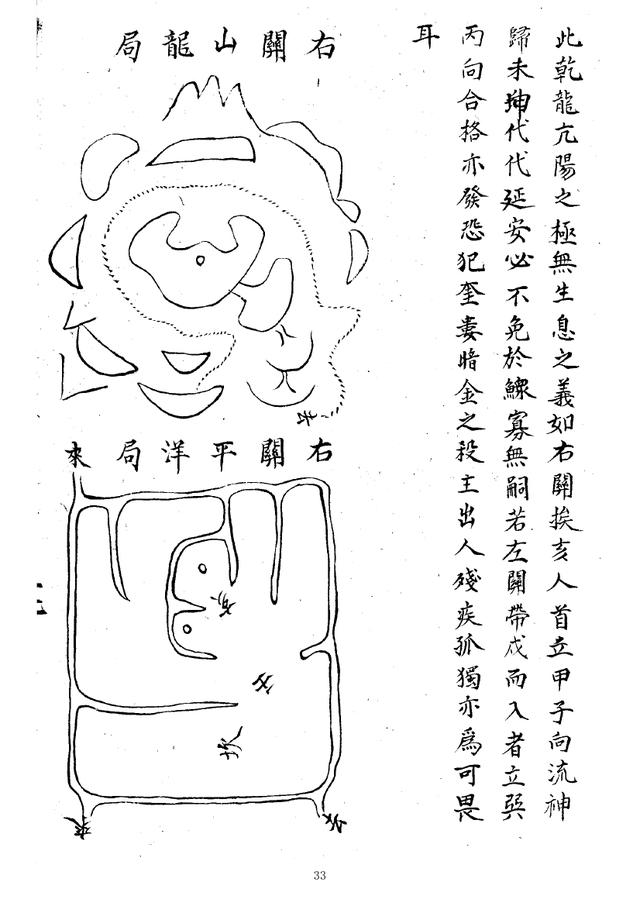 此乾龍亢陽之極無生息之義如右關挨亥人首立甲子向流神
歸未坤代代延安必不免於鰥寡無嗣若左關帶戌而入者立巽
丙向合格亦發恐犯奎婁暗金之殺主出人殘疾孤獨亦爲可畏
耳
右關山龍局
去
右關平洋局
來
坎
33